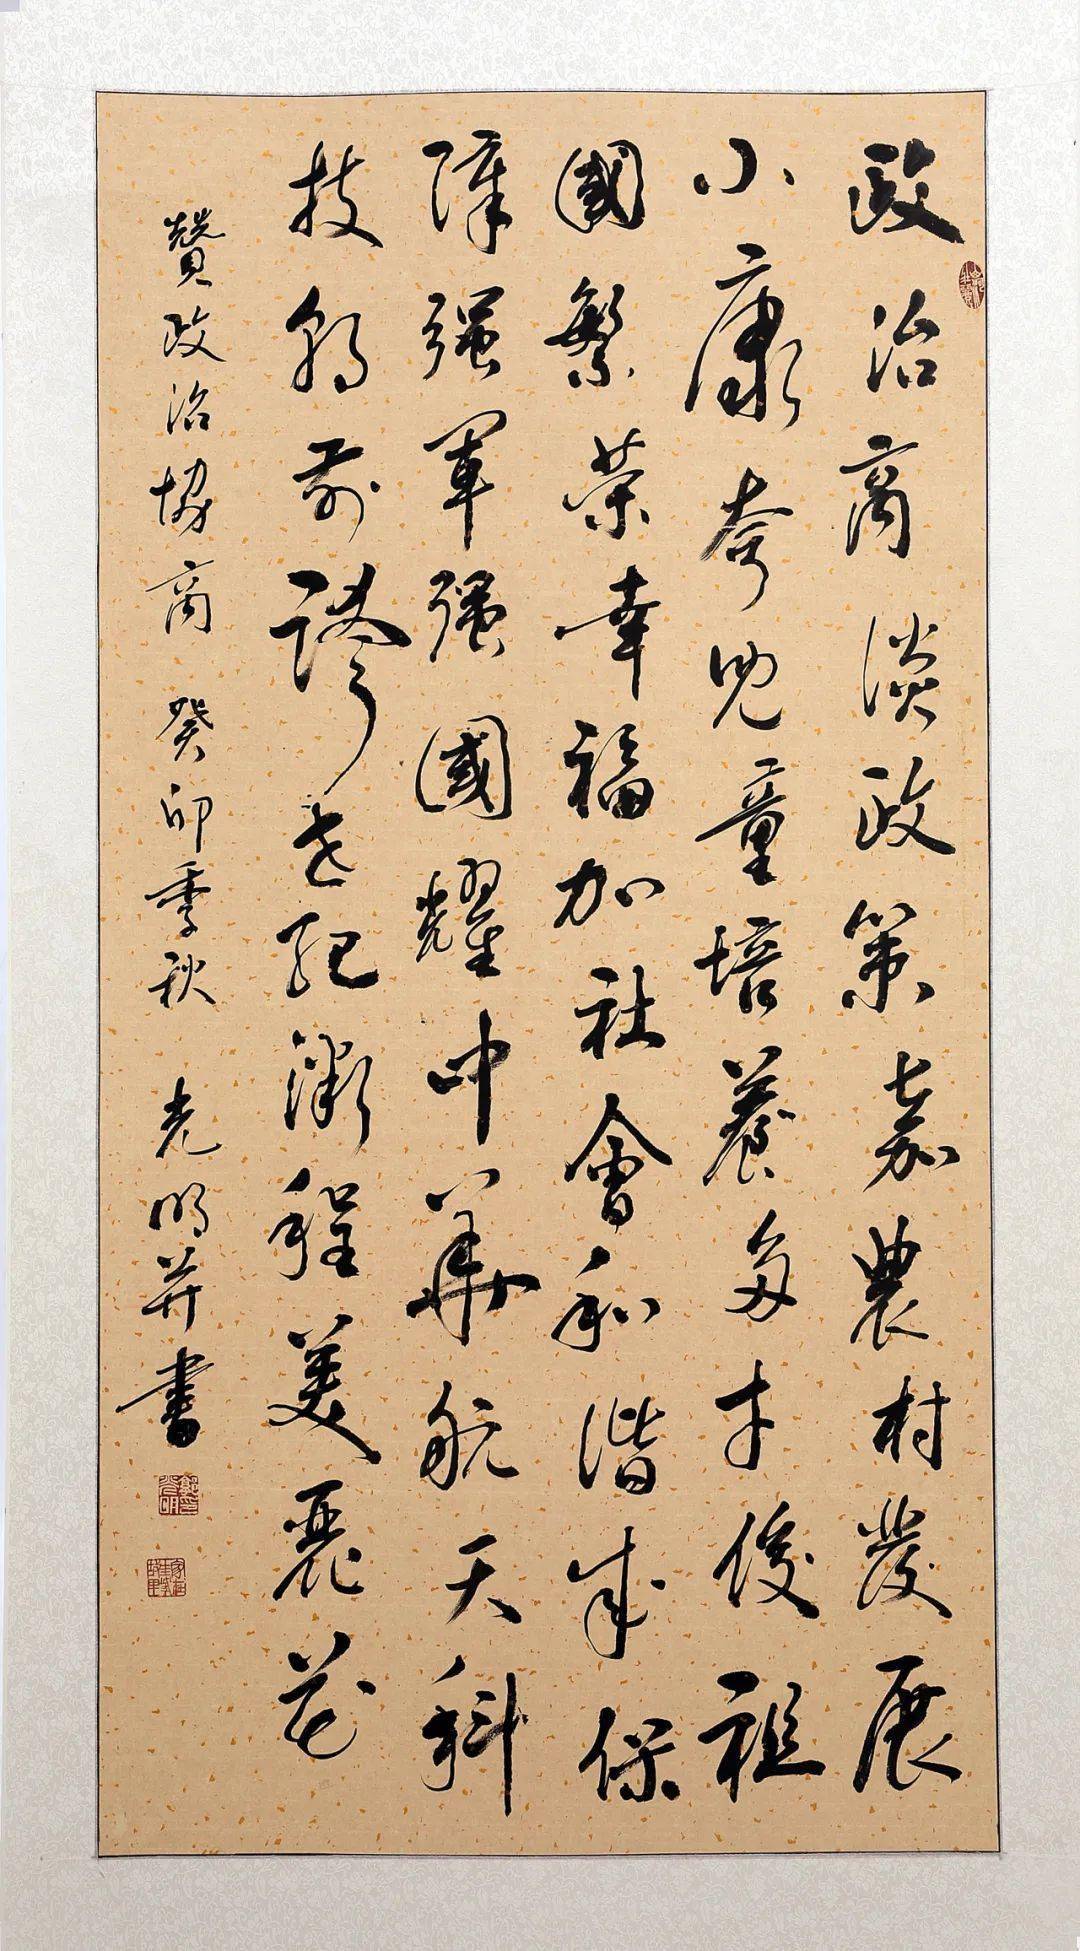 政治商談政策嘉農村發展
小康夸兒童培養多才俊祖
國繁榮幸福加社會和諧成保
障强軍强國耀中華航天科
技前跨世紀程美麗花
贊政治協商 癸卯季秋 光明并書